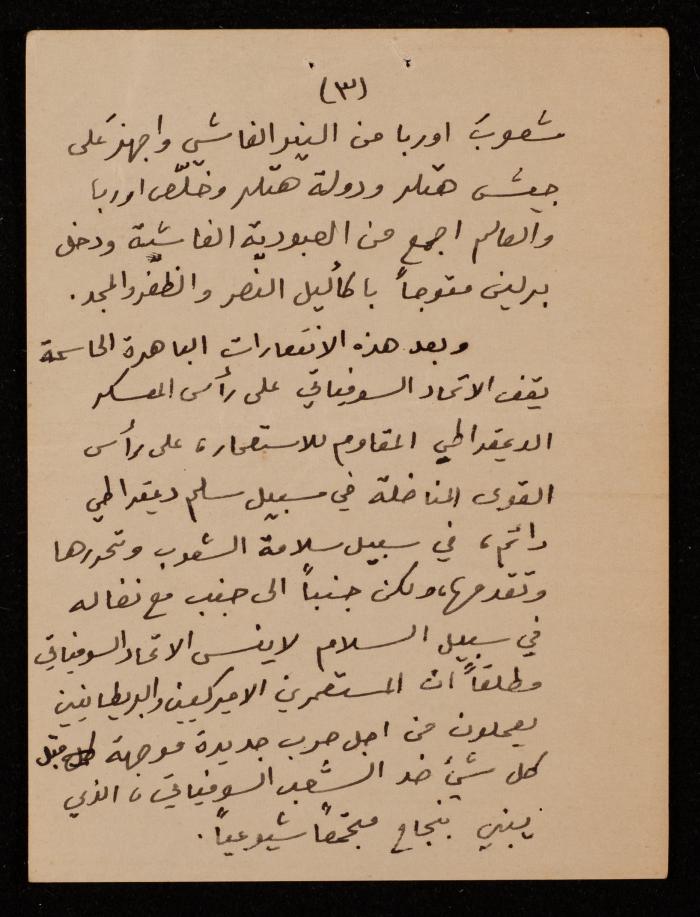 (٣)
شعوبَ اوربا من النير الفاشي واجهز على
جيش هتلر ودولة هتلر وخلّص اوربا
والعالم اجمع من العبودية الفاشية ودخل
برلين متوجاً باكاليل النصر والظفر والمجد.
وبعد هذه الانتصارات الباهرة الحاسمة
يقف الاتحاد السوفياتي على رأس المعسكر
الديمقراطي المقاوم للاستعمار، على رأس
القوى المناضلة في سبيل سلم ديمقراطي
دائم، في سبيل سلامة الشعوب وتحررها
وتقدمها، ولكن جنباً الى جنب مع نضاله
في سبيل السلام لا ينسى الاتحاد السوفياتي
مطلقاً ان المستعمرين الاميركيين والبريطانيين
يعملون من اجل حرب جديدة موجهة قبل
كل شيء ضد الشعب السوفياتي، الذي
يبني بنجاح مجتمعاً شيوعياً.